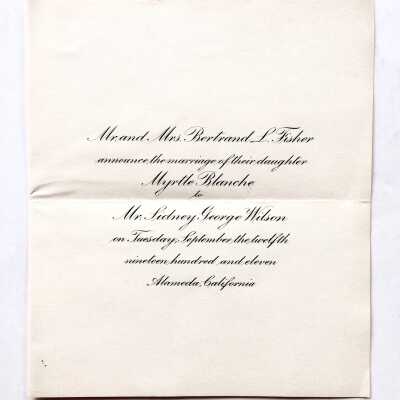 Mr. and Mrs. Bertrand L. Fisher
announce the marriage of their daughter
Myrtle Blanche
to
Mr. Sidney George Wilson
on Tuesday, September the twelfth
nineteen hundred and eleven
Alameda, California